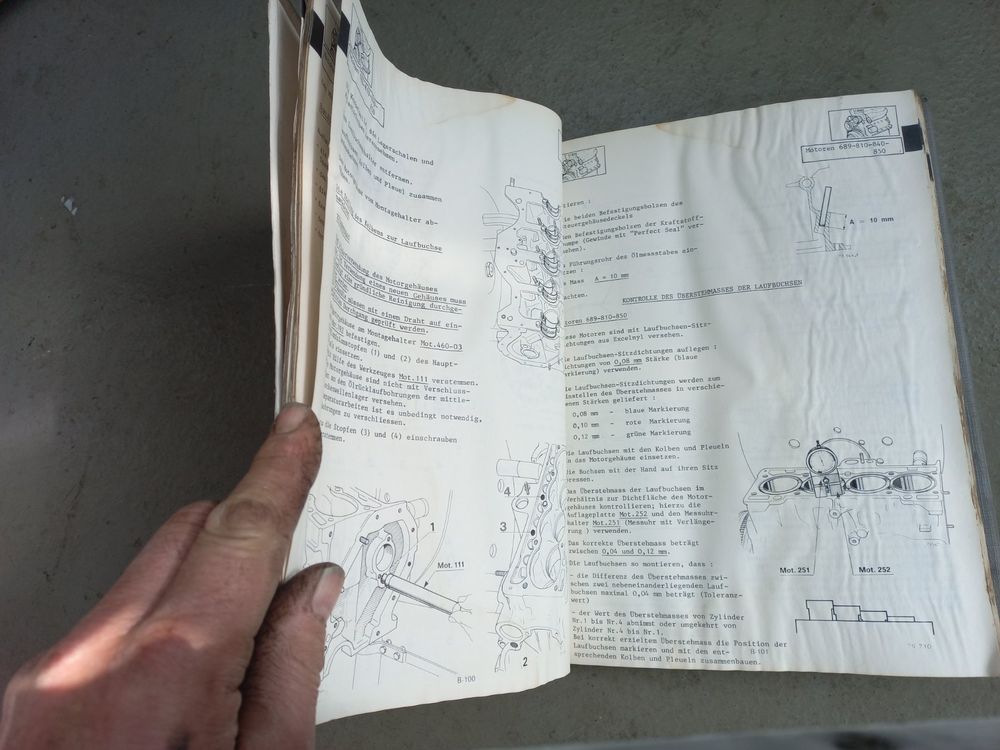 die Lagerschalen und
entfernen.
und Pleuel zusammen
vom Montagehalter ab-
des Kolbens zur Laufbuchse
des Motorgehäuses
eines neuen Gehäuses muss
gründliche Reinigung durchge-
müssen mit einem Draht auf ein-
Durchgang geprüft werden.
am Montagehalter Mot.460-03
befestigen.
(1) und (2) des Haupt-
einsetzen.
Hilfe des Werkzeuges Mot.111 verstemmen.
Motorgehäuse sind nicht mit Verschluss-
an den Ölrücklaufbohrungen der mittle-
versehen.
ist es unbedingt notwendig,
zu verschliessen.
die Stopfen (3) und (4) einschrauben
1
Mot. 111
4
3
2
B-100
Motoren 689-810-840-
850
A = 10 mm
ie beiden Befestigungsbolzen des
teuergehäusedeckels
en Befestigungsbolzen der Kraftstoff-
umpe (Gewinde mit "Perfect Seal" ver-
sehen).
Führungsrohr des Ölmessstabes ein-
tzen :
Mass A = 10 mm
achten.
KONTROLLE DES ÜBERSTEHMASSES DER LAUFBUCHSEN
toren 689-810-850
ese Motoren sind mit Laufbuchsen-Sitz-
ichtungen aus Excelnyl versehen.
ie Laufbuchsen-Sitzdichtungen auflegen :
ichtungen von 0,08 mm Stärke (blaue
arkierung) verwenden.
ie Laufbuchsen-Sitzdichtungen werden zum
instellen des Überstehmasses in verschie-
enen Stärken geliefert :
0,08 mm - blaue Markierung
0,10 mm - rote Markierung
0,12 mm - grüne Markierung
Die Laufbuchsen mit den Kolben und Pleueln
in das Motorgehäuse einsetzen.
Die Bochsen mit der Hand auf ihren Sitz
pressen.
Das Überstehmass der Laufbuchsen im
Verhältnis zur Dichtfläche des Motor-
gehäuses kontrollieren; hierzu die
Auflageplatte Mot.252 und den Messuhr-
halter Mot.251 (Messuhr mit Verlänge-
rung ) verwenden.
Das korrekte Überstehmass beträgt
zwischen 0,04 und 0,12 mm.
Die Laufbuchsen so montieren, dass :
- die Differenz des Überstehmasses zwi-
schen zwei nebeneinanderliegenden Lauf-
buchsen maximal 0,04 mm beträgt (Toleranz-
wert)
- der Wert des Überstehmasses von Zylinder
Nr.1 bis Nr.4 abnimmt oder umgekehrt von
Zylinder Nr.4 bis Nr.1.
Bei korrekt erzieltem Überstehmass die Position der
Laufbuchsen markieren und mit den ent-
sprechenden Kolben und Pleueln zusammenbauen.
Mot. 251
Mot. 252
B-101